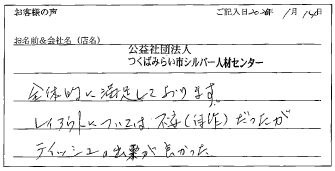 お客様の声 ご記入日2020年 1月14日
お名前&会社名(店名)
公益社団法人
つくばみらい市シルバー人材センター
全体的に満足しております。
レイアウトについては不安(待作)だったが
ティッシュの出来が良かった